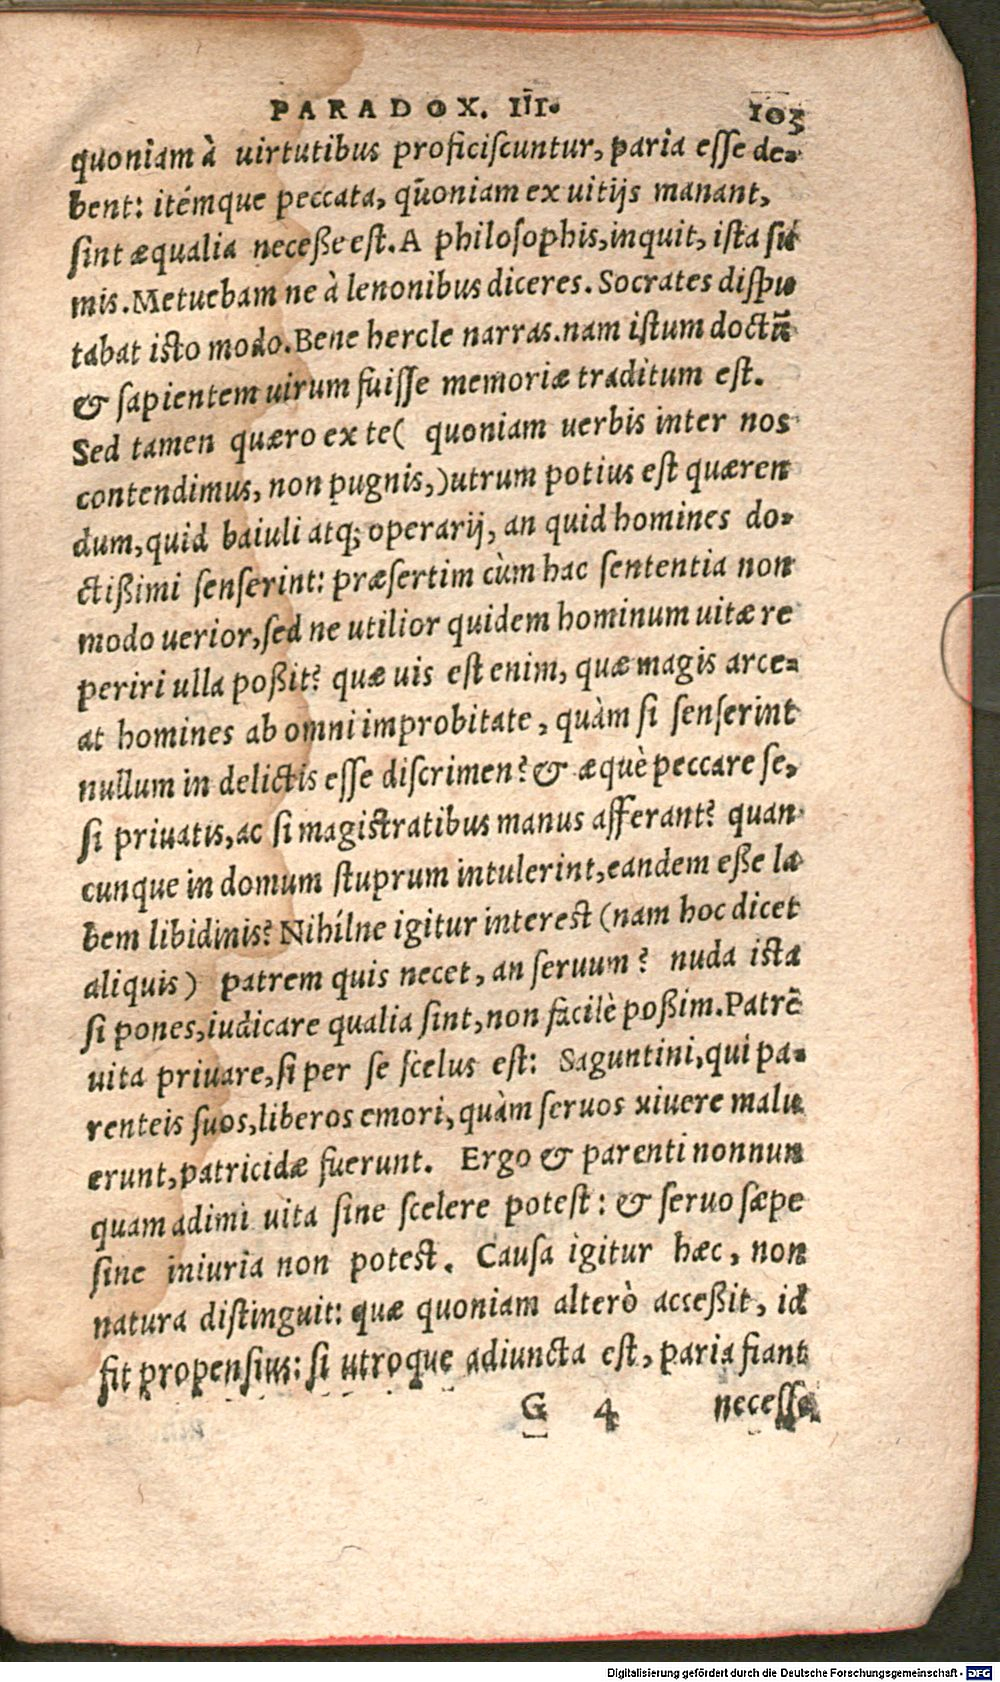 PARADOX. III. 103
quoniam à uirtutibus proficiscuntur, paria esse de-
bent: itémque peccata, quoniam ex uitijs manant,
sint æqualia neceße est. A philosophis, inquit, ista su
mis. Metuebam ne à lenonibus diceres. Socrates dispu
tabat isto modo. Bene hercle narras. nam istum doctũ
& sapientem uirum fuisse memoriæ traditum est.
Sed tamen quæro ex te( quoniam uerbis inter nos
contendimus, non pugnis,) utrum potius est quæren
dum, quid baiuli atq; operarij, an quid homines do-
ctißimi senserint: præsertim cùm hac sententia non
modo uerior, sed ne utilior quidem hominum uitæ re
periri ulla poßit? quæ uis est enim, quæ magis arce-
at homines ab omni improbitate, quàm si senserint
nullum in delictis esse discrimen? & æquè peccare se,
si priuatis, ac si magistratibus manus afferant? quan
cunque in domum stuprum intulerint, eandem eße la
bem libidinis? Nihílne igitur interest (nam hoc dicet
aliquis) patrem quis necet, an seruum? nuda ista
si pones, iudicare qualia sint, non facilè poßim. Patrẽ
uita priuare, si per se scelus est: Saguntini, qui pa-
renteis suos, liberos emori, quàm seruos uiuere malu
erunt, patricidæ fuerunt. Ergo & parenti nonnun
quam adimi uita sine scelere potest: & seruo sæpe
sine iniuria non potest. Causa igitur hæc, non
natura distinguit: quæ quoniam alterò acceßit, id
fit propensius: si utroque adiuncta est, paria fiant
G 4 necesse
Digitalisierung gefördert durch die Deutsche Forschungsgemeinschaft - DFG